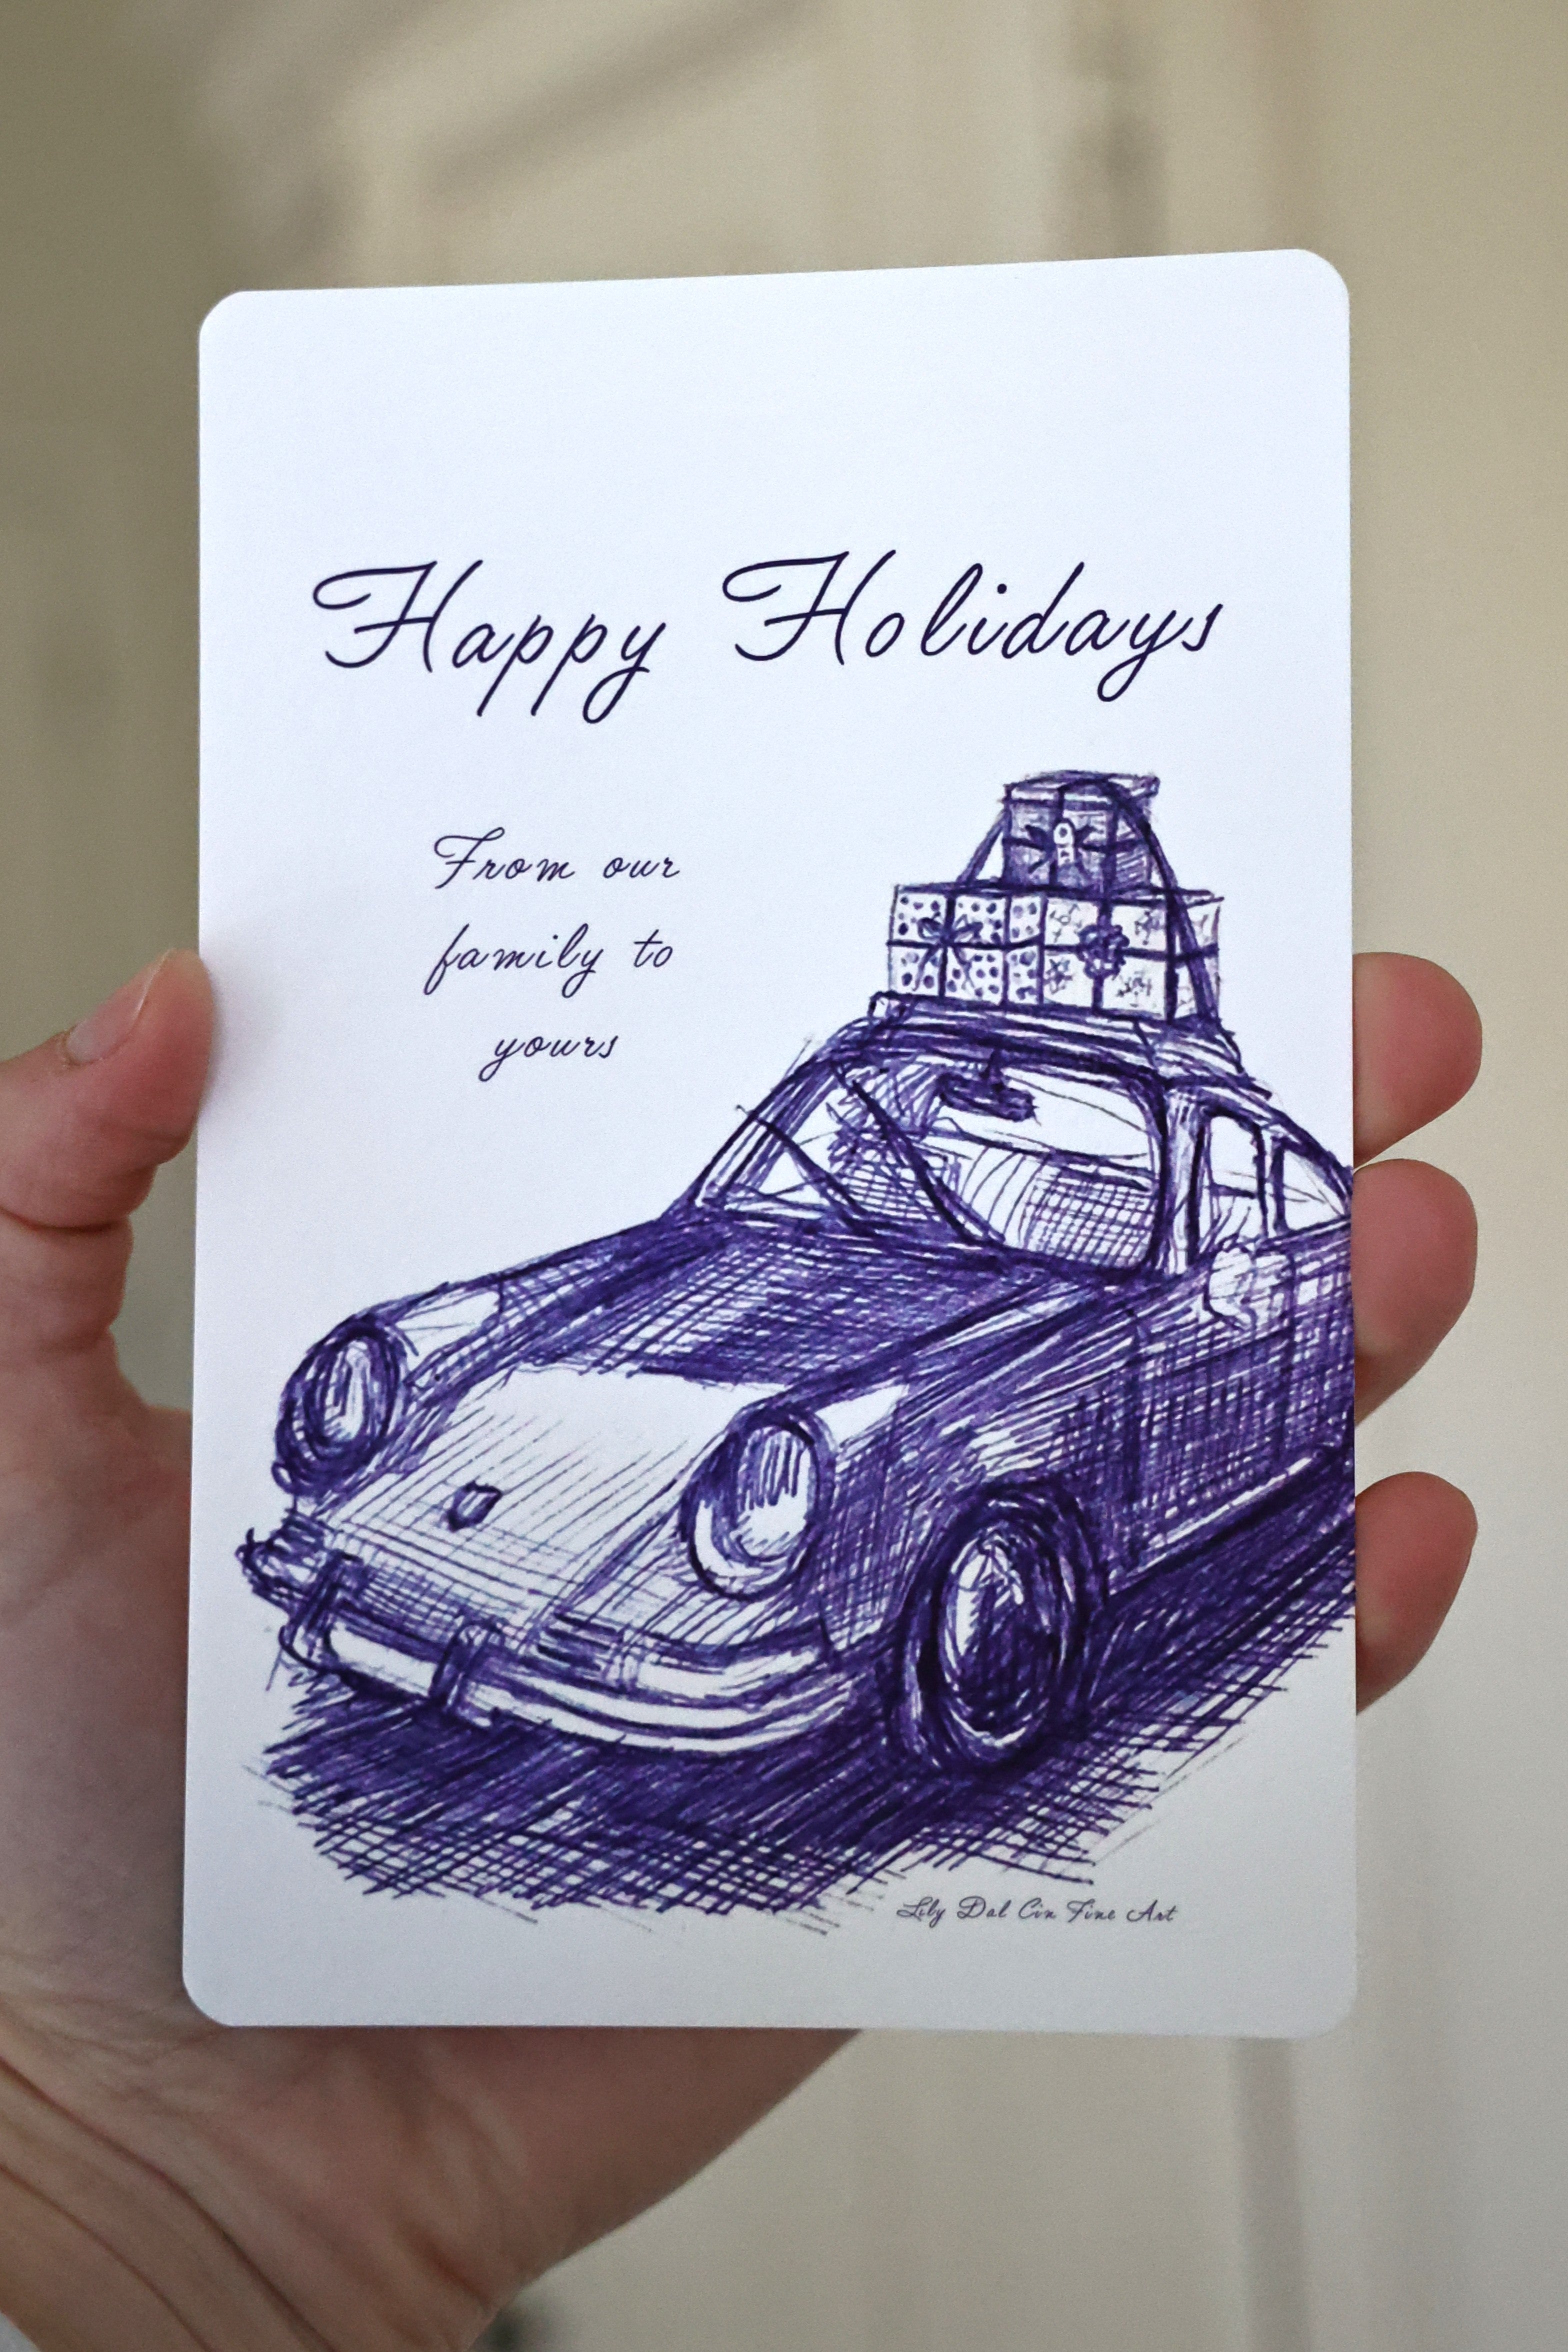 Happy Holidays
From our
family to
yours
Lily Dal Cin Fine Art